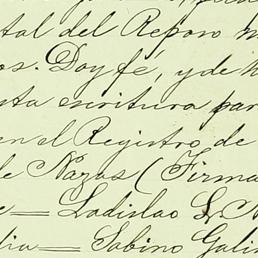 tal del Reparo
os. Doy fé, y de
sta escritura par
en el Registro de
de Nazas (Firma
e = Ladislao S. N
dia = Sabino Gali